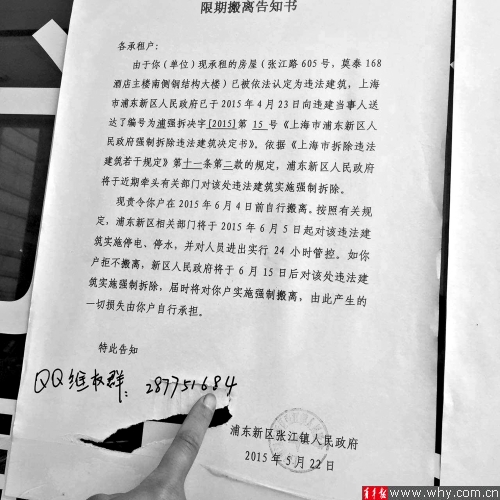 限期搬离告知书
各承租户：
由于你（单位）现承租的房屋（张江路 605 号，莫泰 168
酒店主楼南侧钢结构大楼）已被依法认定为违法建筑，上海
市浦东新区人民政府已于 2015 年 4 月 23 日向违建当事人送
达了编号为浦强拆决字[2015]第 15 号《上海市浦东新区人
民政府强制拆除违法建筑决定书》。依据《上海市拆除违法
建筑若干规定》第十一条第二款的规定，浦东新区人民政府
将于近期牵头有关部门对该处违法建筑实施强制拆除。
现责令你户在 2015 年 6 月 4 日前自行搬离。按照有关规
定，浦东新区相关部门将于 2015 年 6 月 5 日起对该违法建
筑实施停电、停水，并对人员进出实行 24 小时管控。如你
户拒不搬离，新区人民政府将于 6 月 15 日后对该处违法建
筑实施强制拆除，届时将对你户实施强制搬离，由此产生的
一切损失由你户自行承担。
特此告知
QQ维权群：287751684
浦东新区张江镇人民政府
2015 年 5 月 22 日
青年报 www.why.com.cn